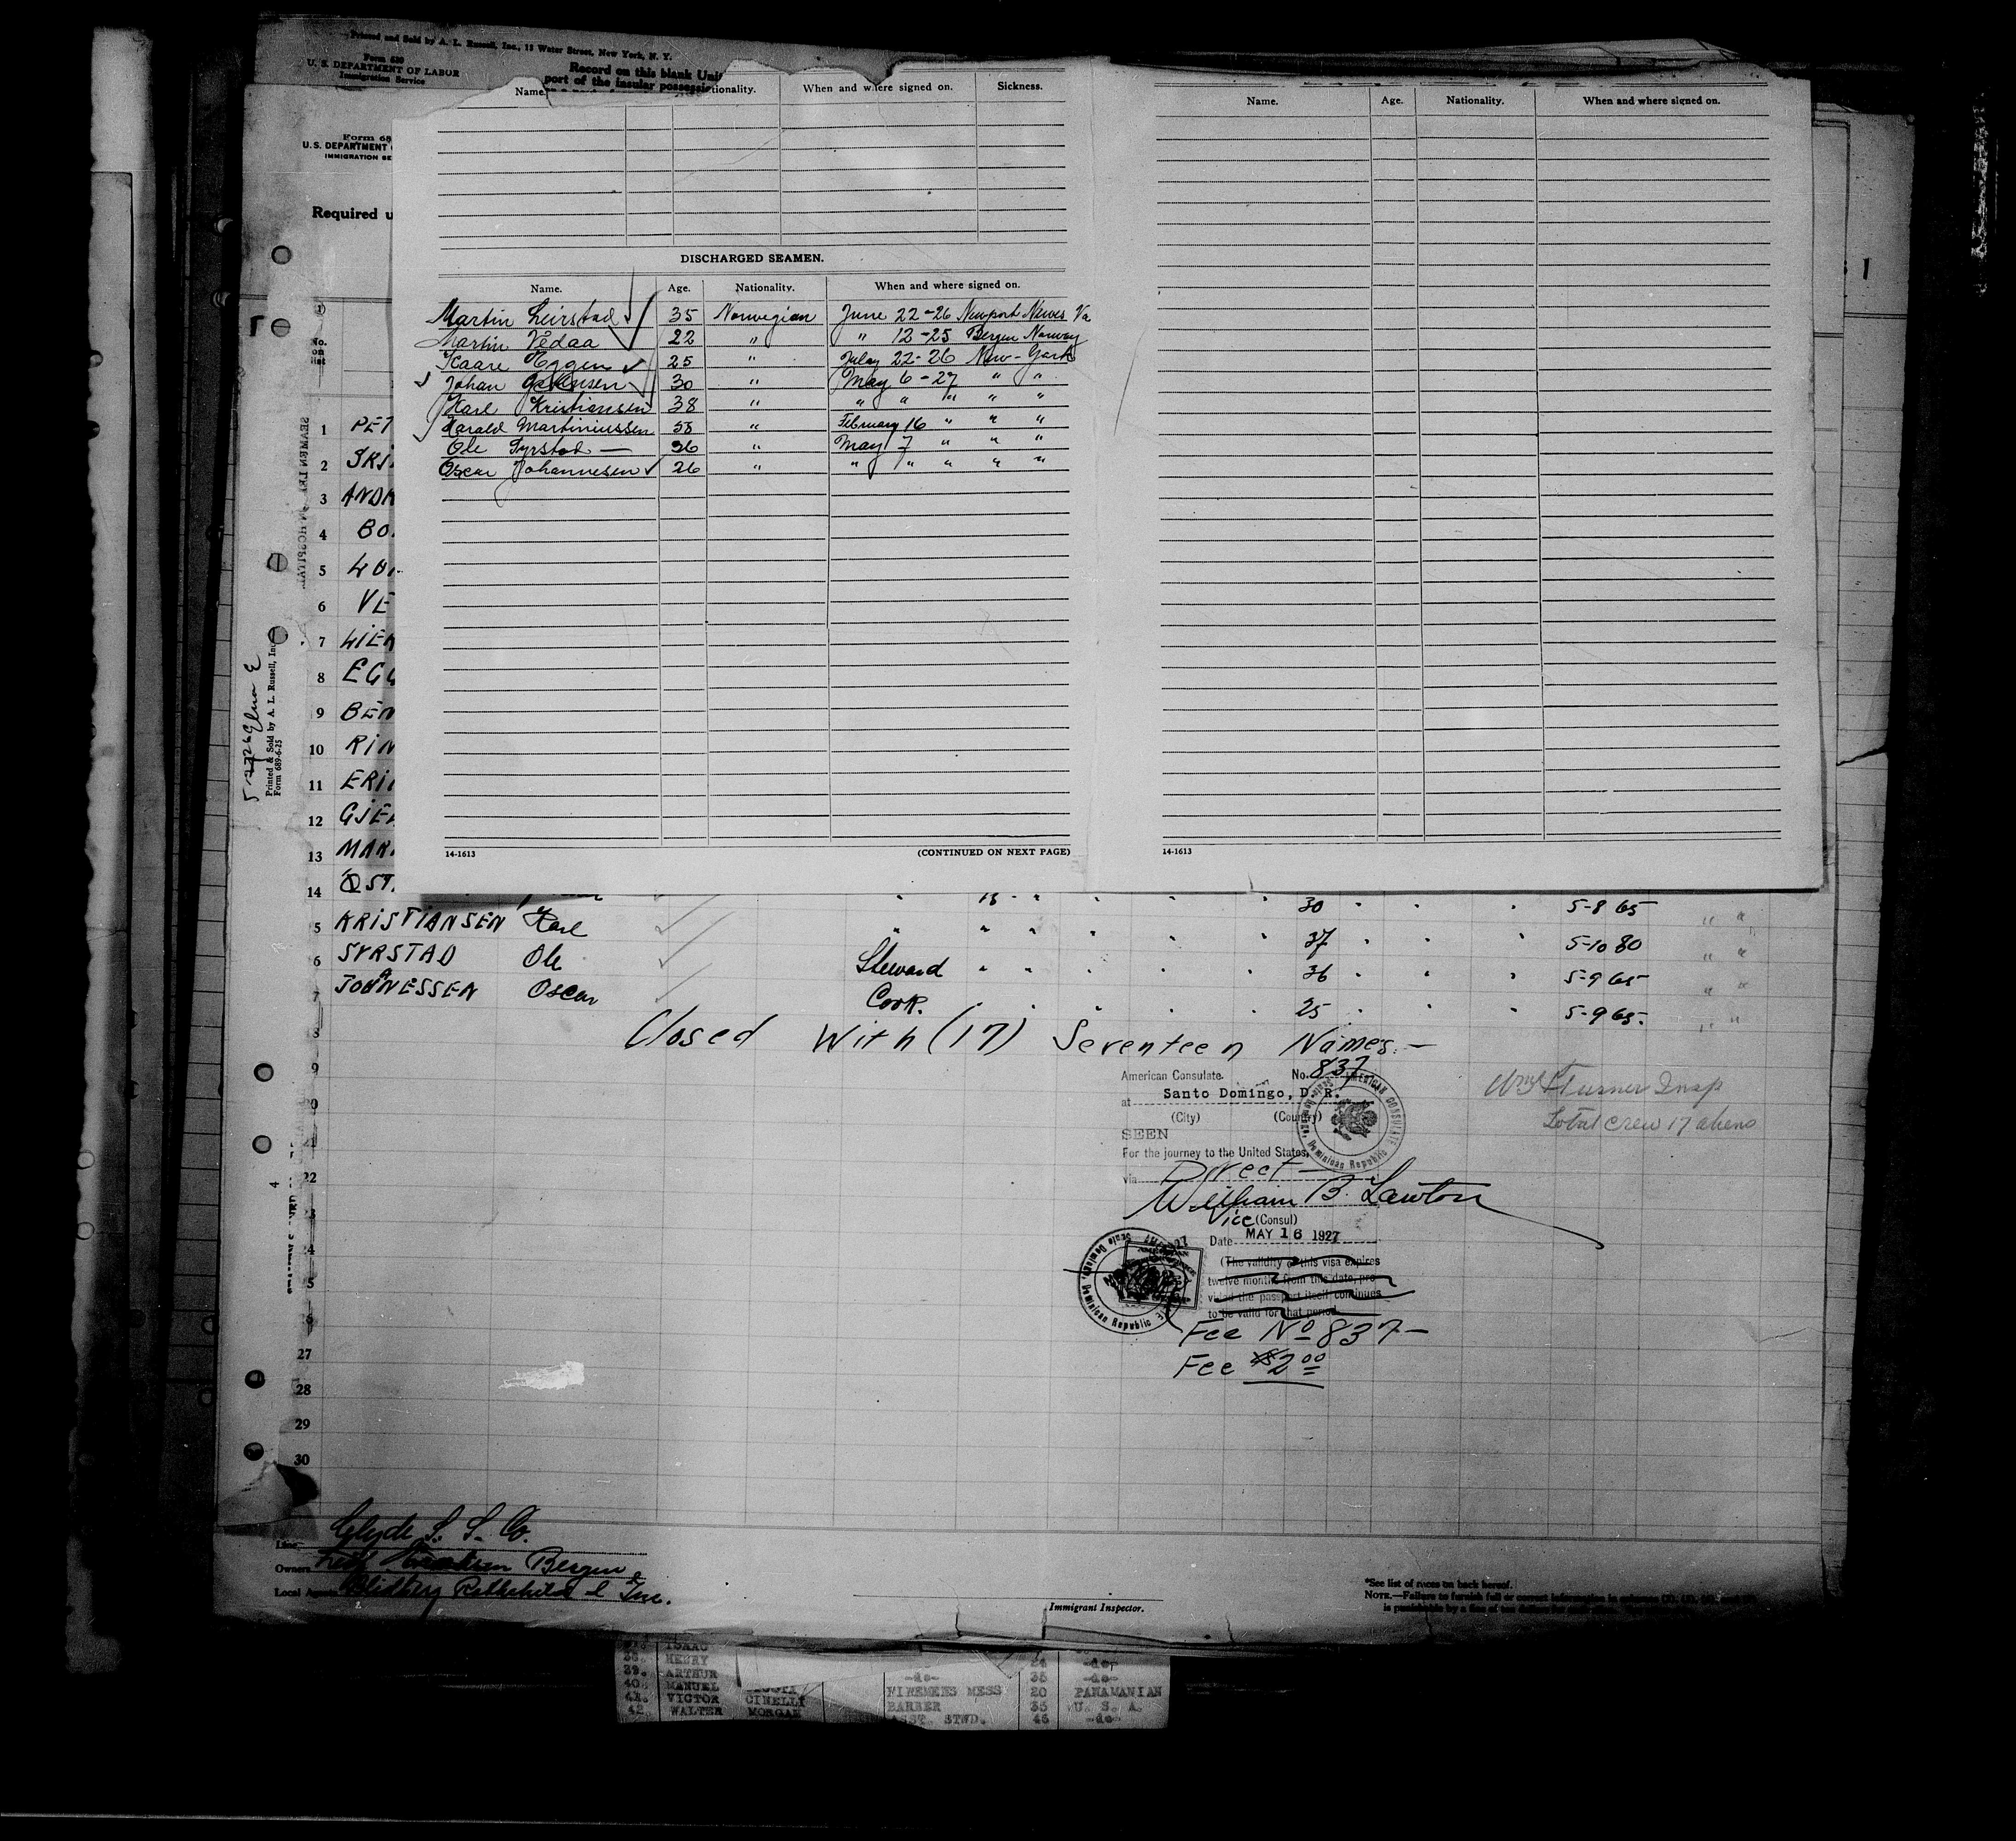 Printed and Sold by A. L. Russell, Inc., 15 Water Street, New York, N. Y.
Form 689
U. S. DEPARTMENT OF LABOR
Immigration Service
Record on this blank
port of the insular
Form 68
U. S. DEPARTMENT
IMMIGRATION SE
Required u
Name. tionality. When and where signed on. Sickness.
DISCHARGED SEAMEN.
Name. Age. Nationality. When and where signed on.
Martin Leirstad 35 Norwegian June 22-26 Newport News Va
Martin Vedaa 22 " " 12-25 Bergen Norway
Kaare Eggen 25 " July 22-26 New-York
Johan 30 " May 6-27 " "
Karl Kristiansen 38 " " " " " "
Harald Martiniussen 38 " February 16 " " "
Ole Syrstad — 36 " May 7 " " "
Oscar Johannesen 26 " " " " " "
14-1613
(CONTINUED ON NEXT PAGE)
Name. Age. Nationality. When and where signed on.
14-1613
No. on list
1 PET
2
3 ANDR
4 BO
5
6 VE
7
8 EGG
9 BEN
10 RIN
11 ERI
12 GJE
13 MAR
14 ØST 30 " " 5-8 65 " "
5 KRISTIANSEN Karl " " " " " " 37 " " " 5-10 80 " "
6 SYRSTAD Ole Steward " " " " " 36 " " " 5-9 65 " "
7 JOHANESSEN Oscar Cook. " " " " 25 " " 5-9 65. " "
8 Closed With (17) Seventeen Names.—
9
20
21
22
23
24
25
26
27
28
29
30
American Consulate. No. 837
at Santo Domingo, D. R.
(City) (Country)
SEEN
For the journey to the United States,
via Direct —
William B. Lawton
Vice (Consul)
Date MAY 16 1927
(The validity of this visa expires
twelve months from this date, pro-
vided the passport itself continues
to be valid for that period.
Fee No 837—
Fee $2 00
Turner Insp
Total crew 17 aliens
Printed & Sold by A. L. Russell, Inc.
Form 689-6-25
Line Clyde S. S. Co.
Owners Bergen
Local Agents Inc.
Immigrant Inspector.
*See list of races on back hereof.
NOTE.—Failure to furnish full or correct information in columns
is punishable by a fine of ten dollars
ISAAC
38. HENRY 24 -do-
39. ARTHUR -do- 35 -do-
40. MANUEL FIREMENS MESS 20 PANAMANIAN
41. VICTOR CINELLI BARBER 35 U. S. A.
42. WALTER MORGAN ASST. STWD. 45 -do-